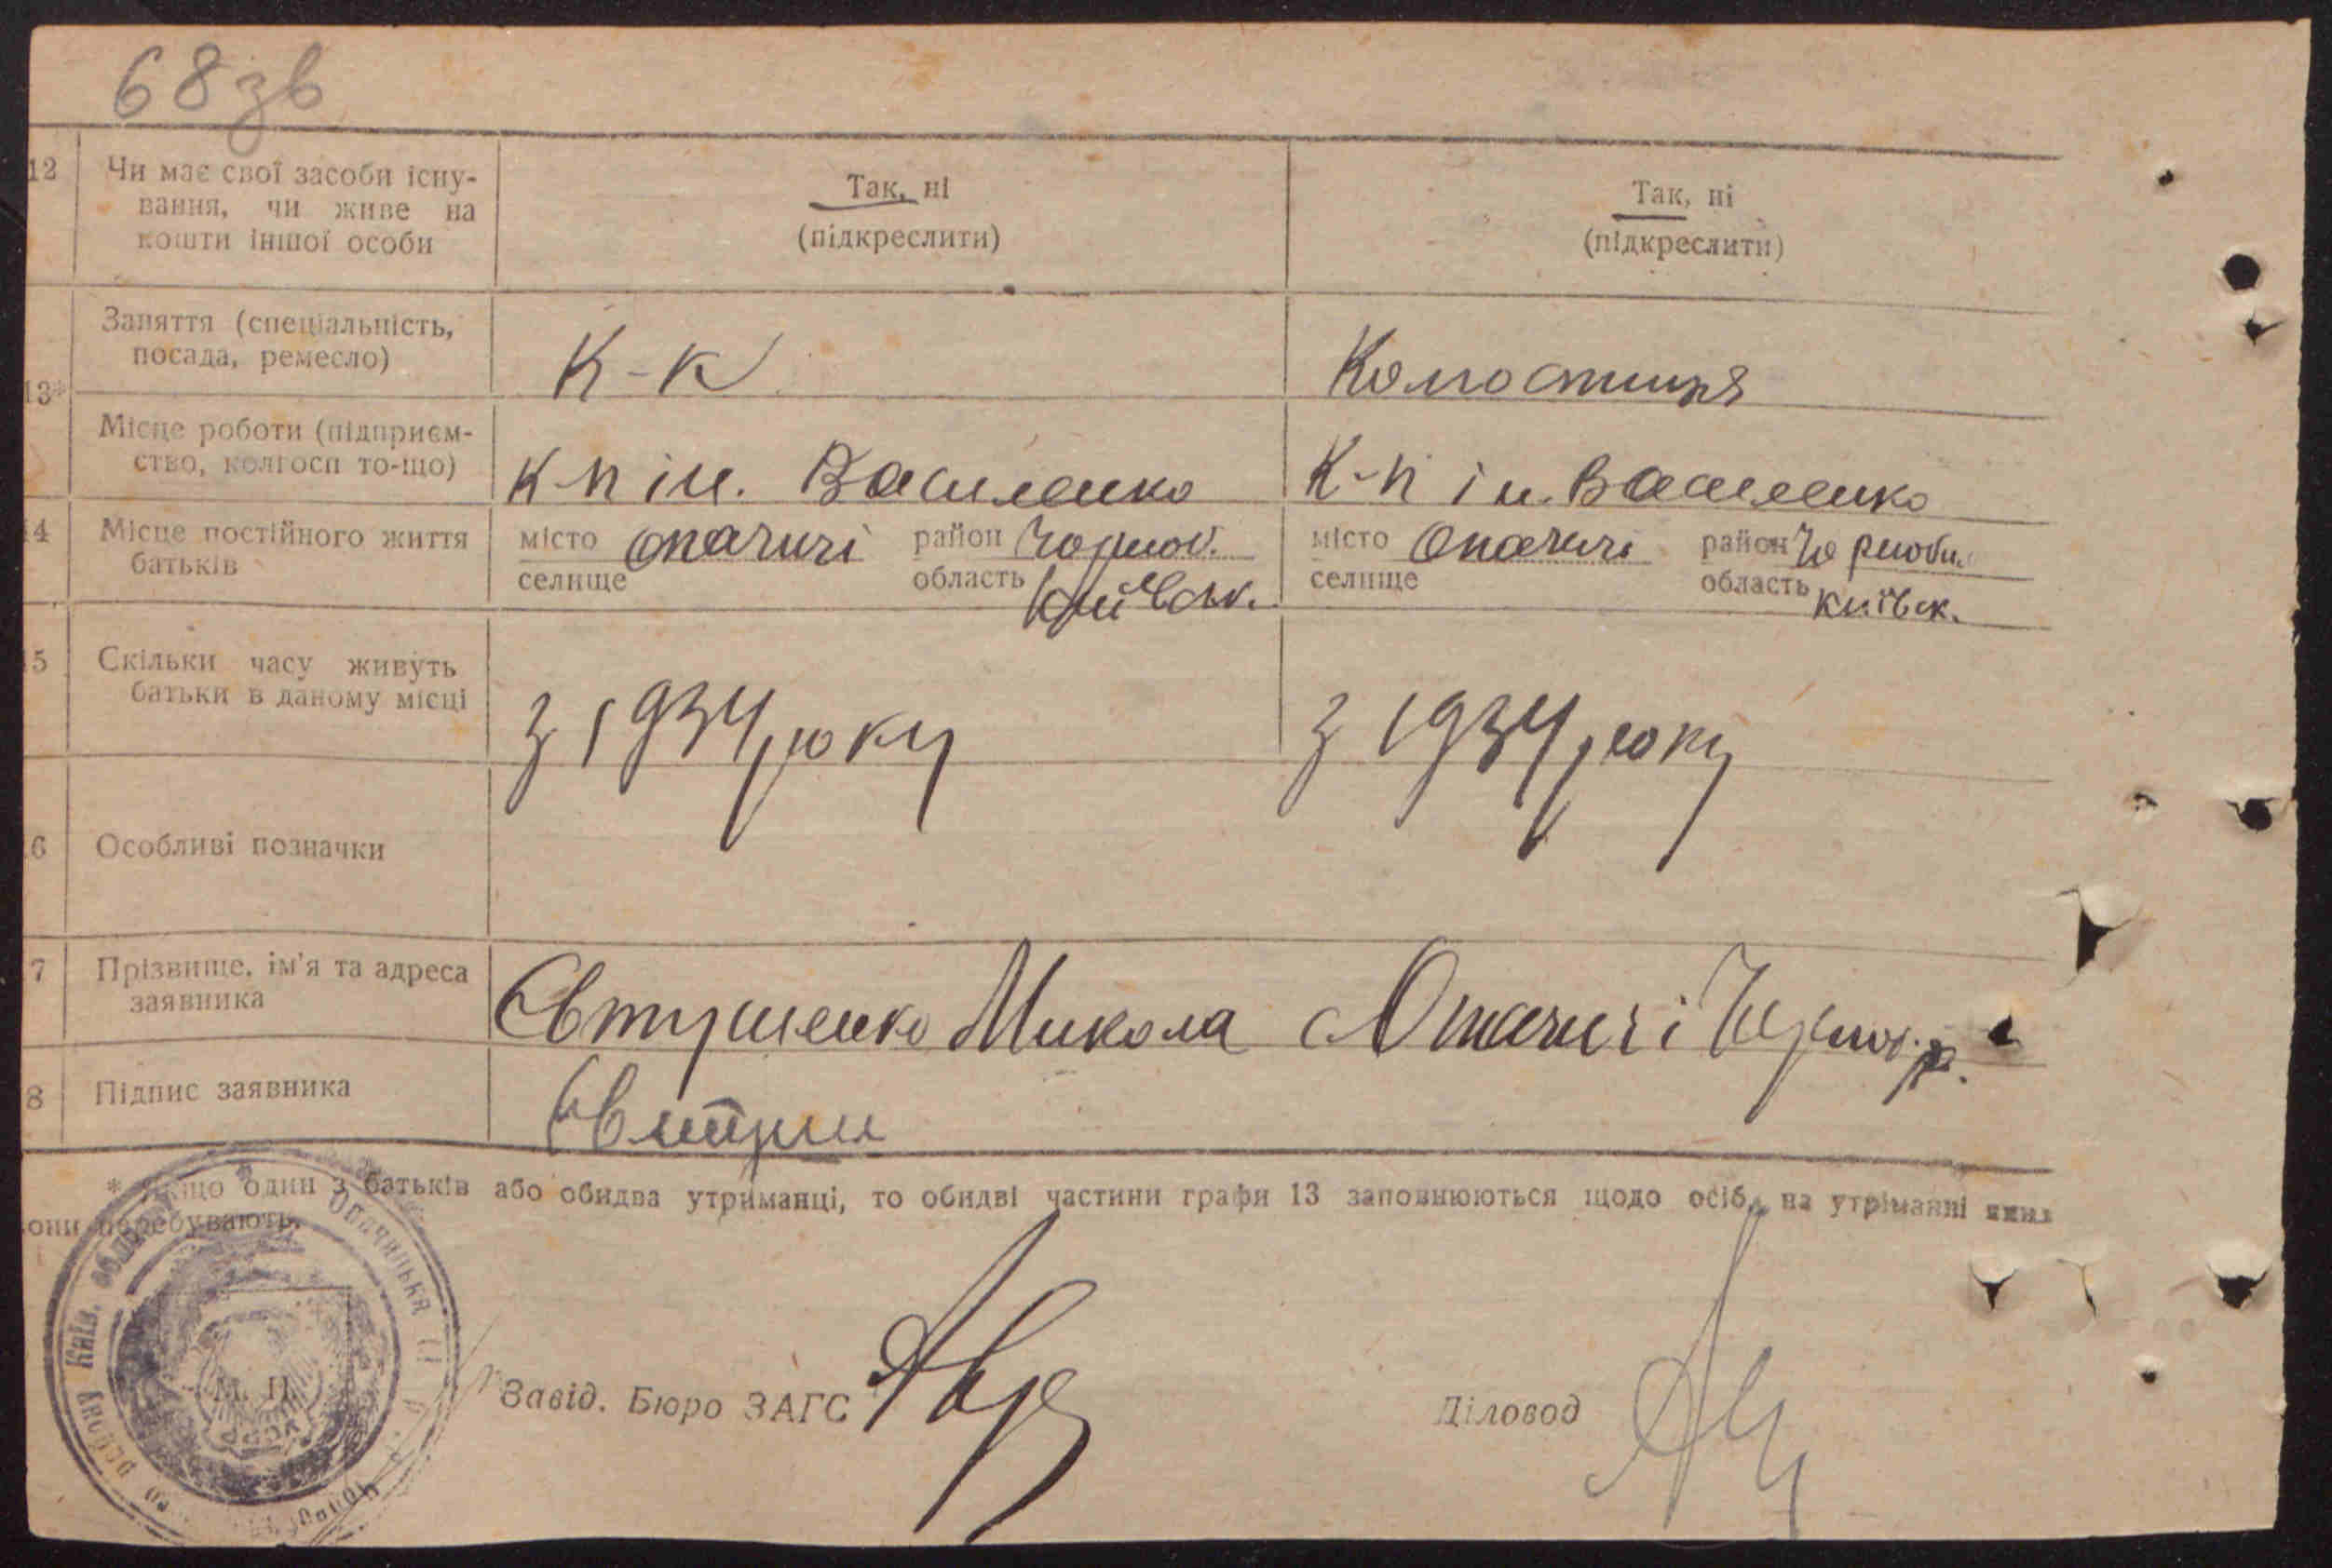 68зв
12 Чи має свої засоби існу-
вання, чи живе на
кошти іншої особи
Так, ні
(підкреслити)
Так, ні
(підкреслити)
13* Заняття (спеціальність,
посада, ремесло)
К-к
Місце роботи (підприєм-
ство, колгосп то-що)
К-п ім. Василенко
К-п ім. Василенко
4 Місце постійного життя
батьків
місто Опачичі район Чорноб.
селище область Київськ.
місто Опачичі район Чорноби.
селище область Київськ.
5 Скільки часу живуть
батьки в даному місці
З 1934 року
З 1934 року
6 Особливі позначки
7 Прізвище, ім'я та адреса
заявника
Євтушенко Микола с Опачичі Чорноб. р.
8 Підпис заявника
* Якщо один з батьків або обидва утриманці, то обидві частини графи 13 заповнюються щодо осіб, на утріманні яких
вони перебувають.
Київ. Опачицька
району
УСРР
М. П.
Завід. Бюро ЗАГС
Діловод